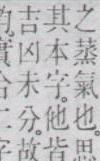 之蒸氣也。思
其本字。他皆
吉凶未分。故
實合二字